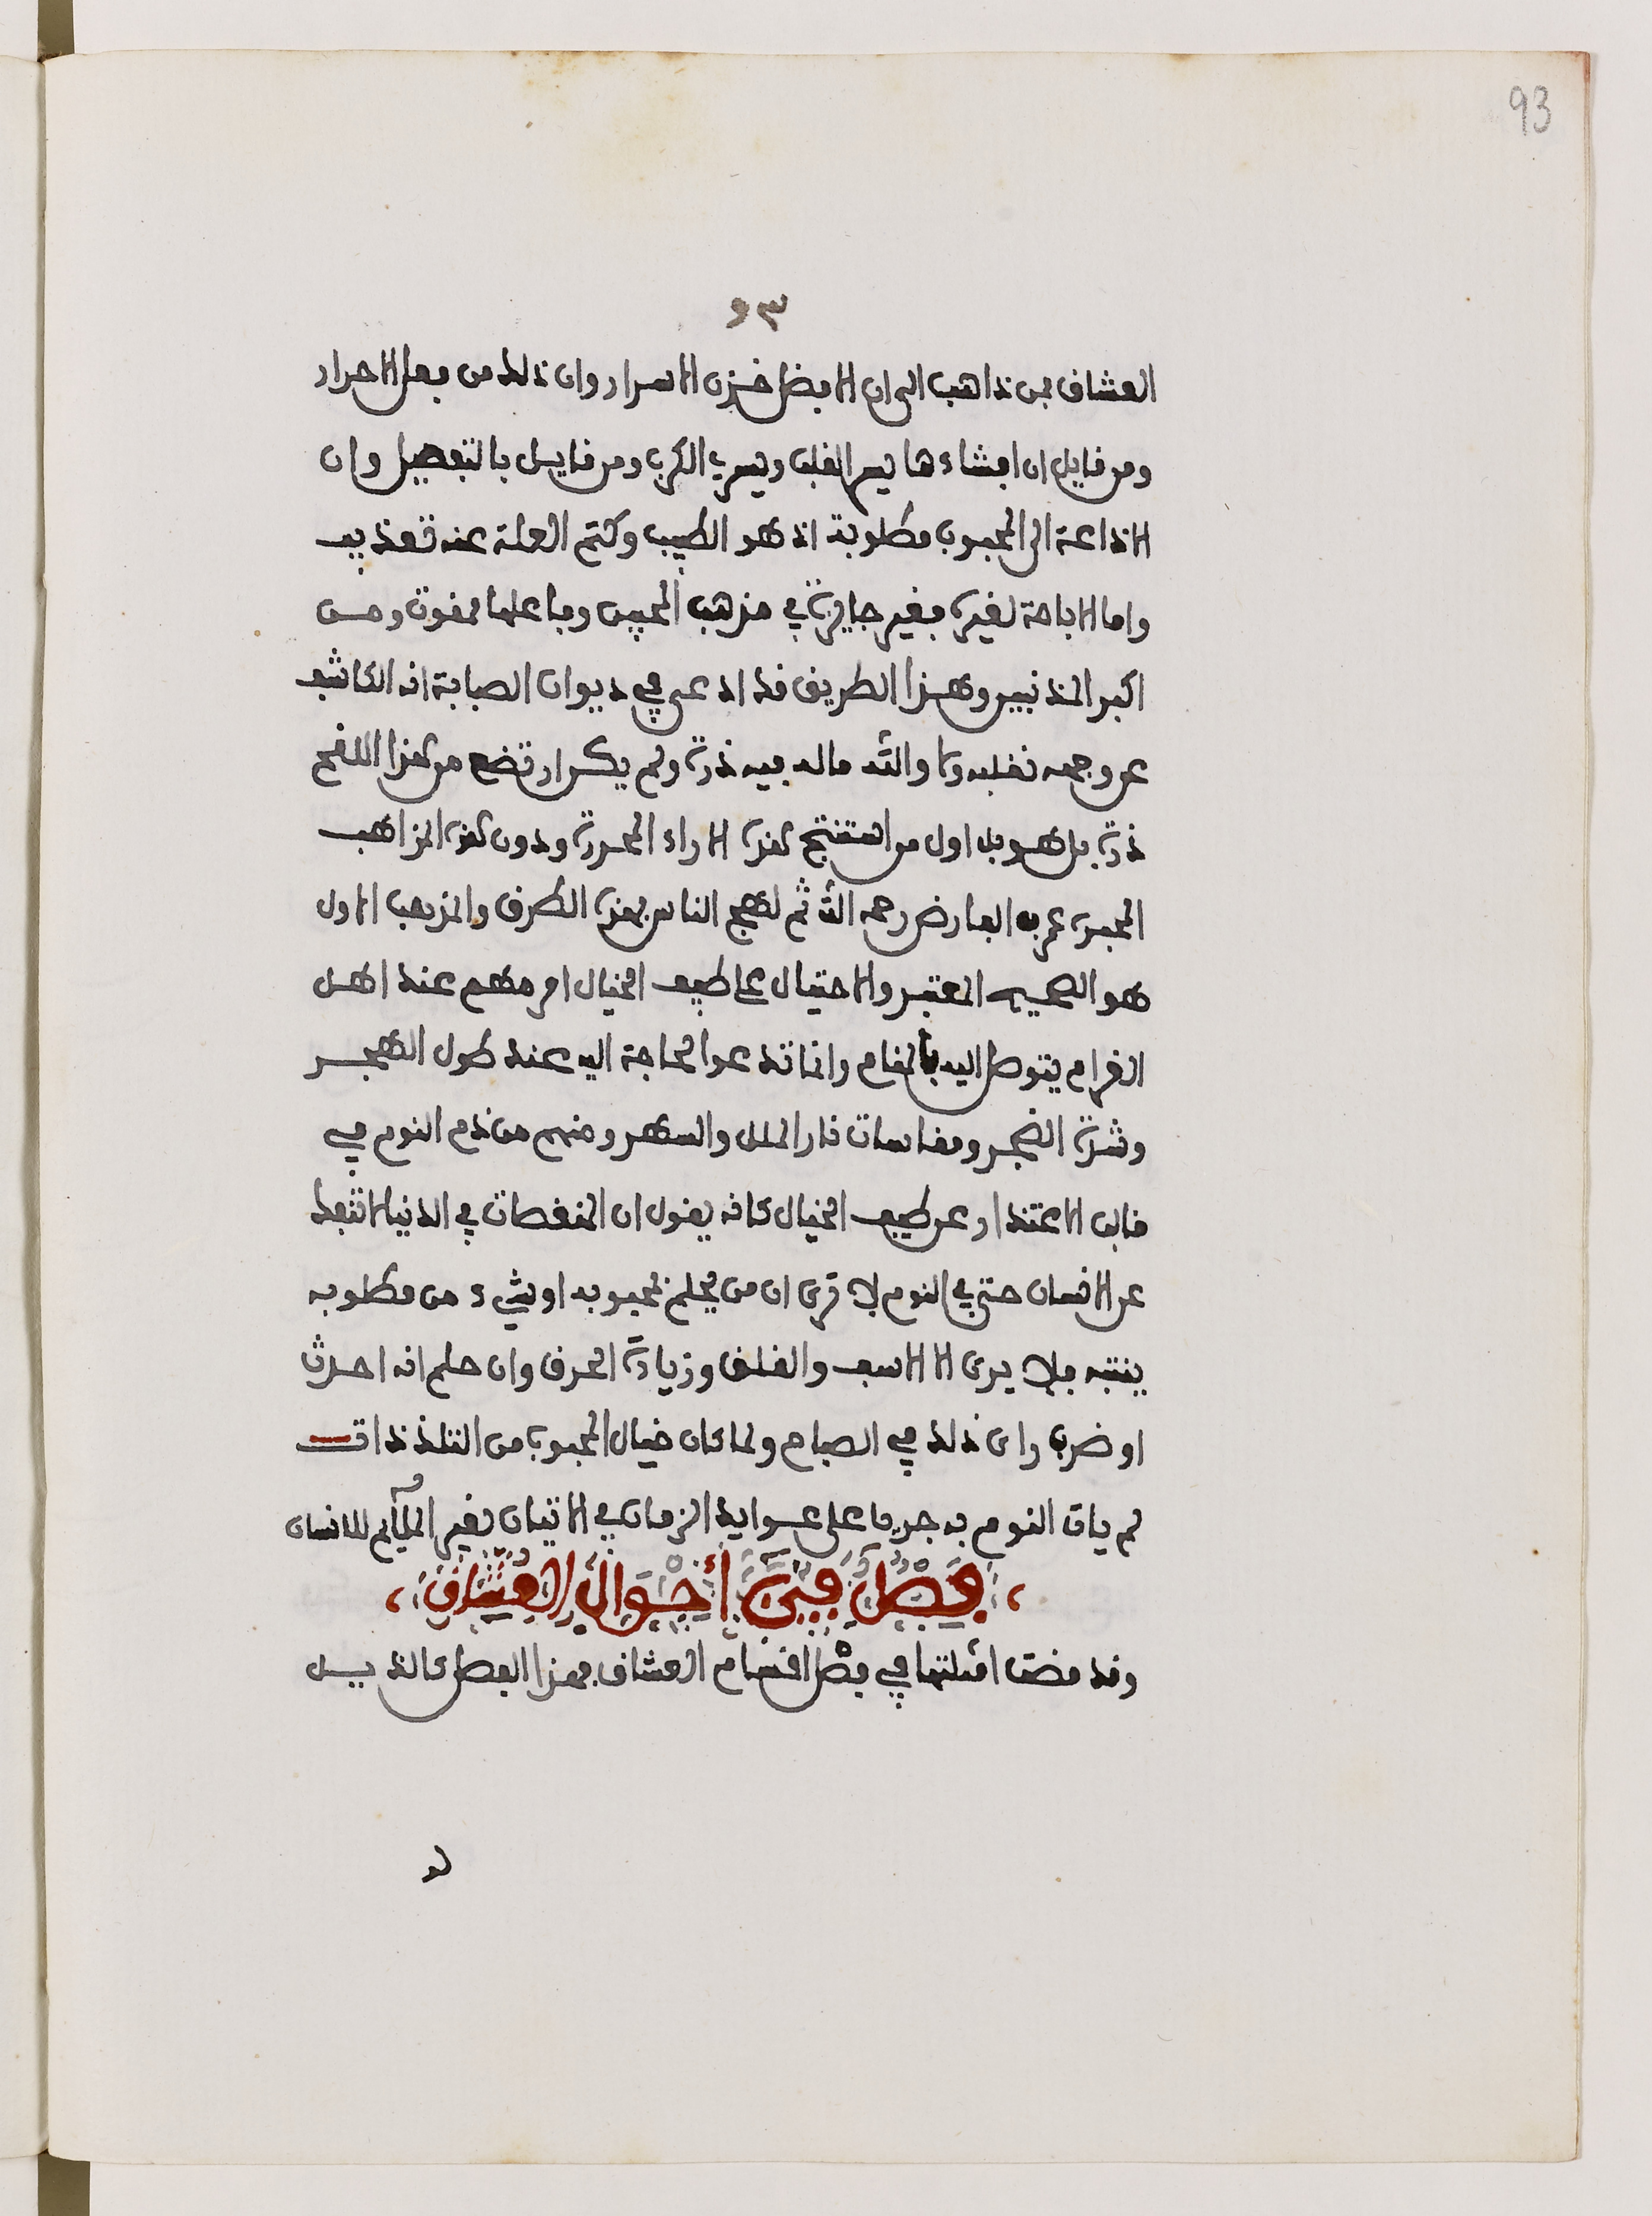 93
٩٣
العشاق فمن ذاهب الى ان الافضل خزن الاسرار وان ذلك من فعل الاحرار
ومن قايل ان افشاءها يسر القلب ويسرب الكرب ومن قايل بالتفصيل وان
الاذاعة الى المحبوب مطلوبة اذ هو الطبيب وكتم العلة عنه تعذيب
واما الاباحة لغيره فغير جايزة في مذهب المحبين وفاعلها ممقوت ومن
اكبر المذنبين وهذا الطريق قد ادعى في ديوان الصبابة انه الكاشف
عن وجهه نقابه ولا والله ماله فيه ذرة ولم يكن ارتضع من هذا اللقح
ذرة بل هو بل اول من استنتج هذه الاراء المحررة ودون هذه المذاهب
المحبرة عمر بن الفارض رحمه الله ثم لهج الناس بهذه الطرق والمذهب الاول
هو الصحيح المعتبر والاحتيال على طيف الخيال امر مهم عند اهل
الغرام يتوصل اليه بالمنام وانما تدعو الحاجة اليه عند طول الهجر
وشدة الضجر ومقاسات نار الملل والسهر ومنهم من ذم النوم في
قالب الاعتذار عن طيف الخيال كانه يقول ان المنغصات في الدنيا لا تنفك
عن الانسان حتى في النوم الا ترى ان من يحلم بمحبوبه او بشيء من مطلوبه
ينتبه فلا يرى الا الاسف والقلق وزيادة الحرق وان حلم انه احدث
او ضرب راى ذلك في الصباح ولما كان خيال المحبوب من التلذذات
لم يات النوم به جريا على عوايد الزمان في الاتيان بغير الملايم للانسان
فصل في احوال العشاق
وقد مضت امثلتها في فصل اقسام العشاق فهذا الفصل كالذيل
له